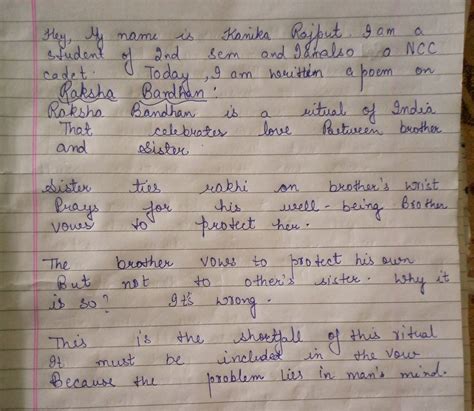 Hey, My name is Kanika Rajput. I am a
student of 2nd sem and I am also a NCC
cadet. Today, I am written a poem on
Raksha Bandhan:
Raksha Bandhan is a ritual of India
That celebrates love Between brother
and Sister
Sister ties rakhi on brother's wrist
Prays for his well-being Brother
vows to protect her.
The brother vows to protect his own
But not to other's sister. Why it
is so? It's wrong.
This is the shortfall of this ritual
It must be included in the vow
Because the problem lies in man's mind.